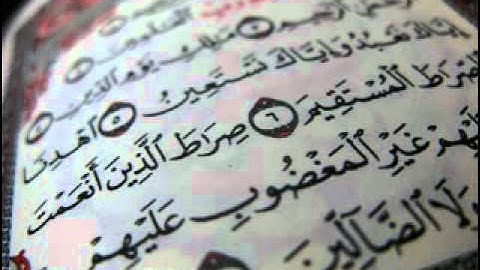 الرَّحِيمِ مَٰلِكِ يَوْمِ الدِّينِ
إِيَّاكَ نَعْبُدُ وَإِيَّاكَ نَسْتَعِينُ ٥ اهْدِنَا
الصِّرَاطَ الْمُسْتَقِيمَ ٦ صِرَاطَ الَّذِينَ أَنْعَمْتَ
غَيْرِ الْمَغْضُوبِ عَلَيْهِمْ
وَلَا الضَّالِّينَ